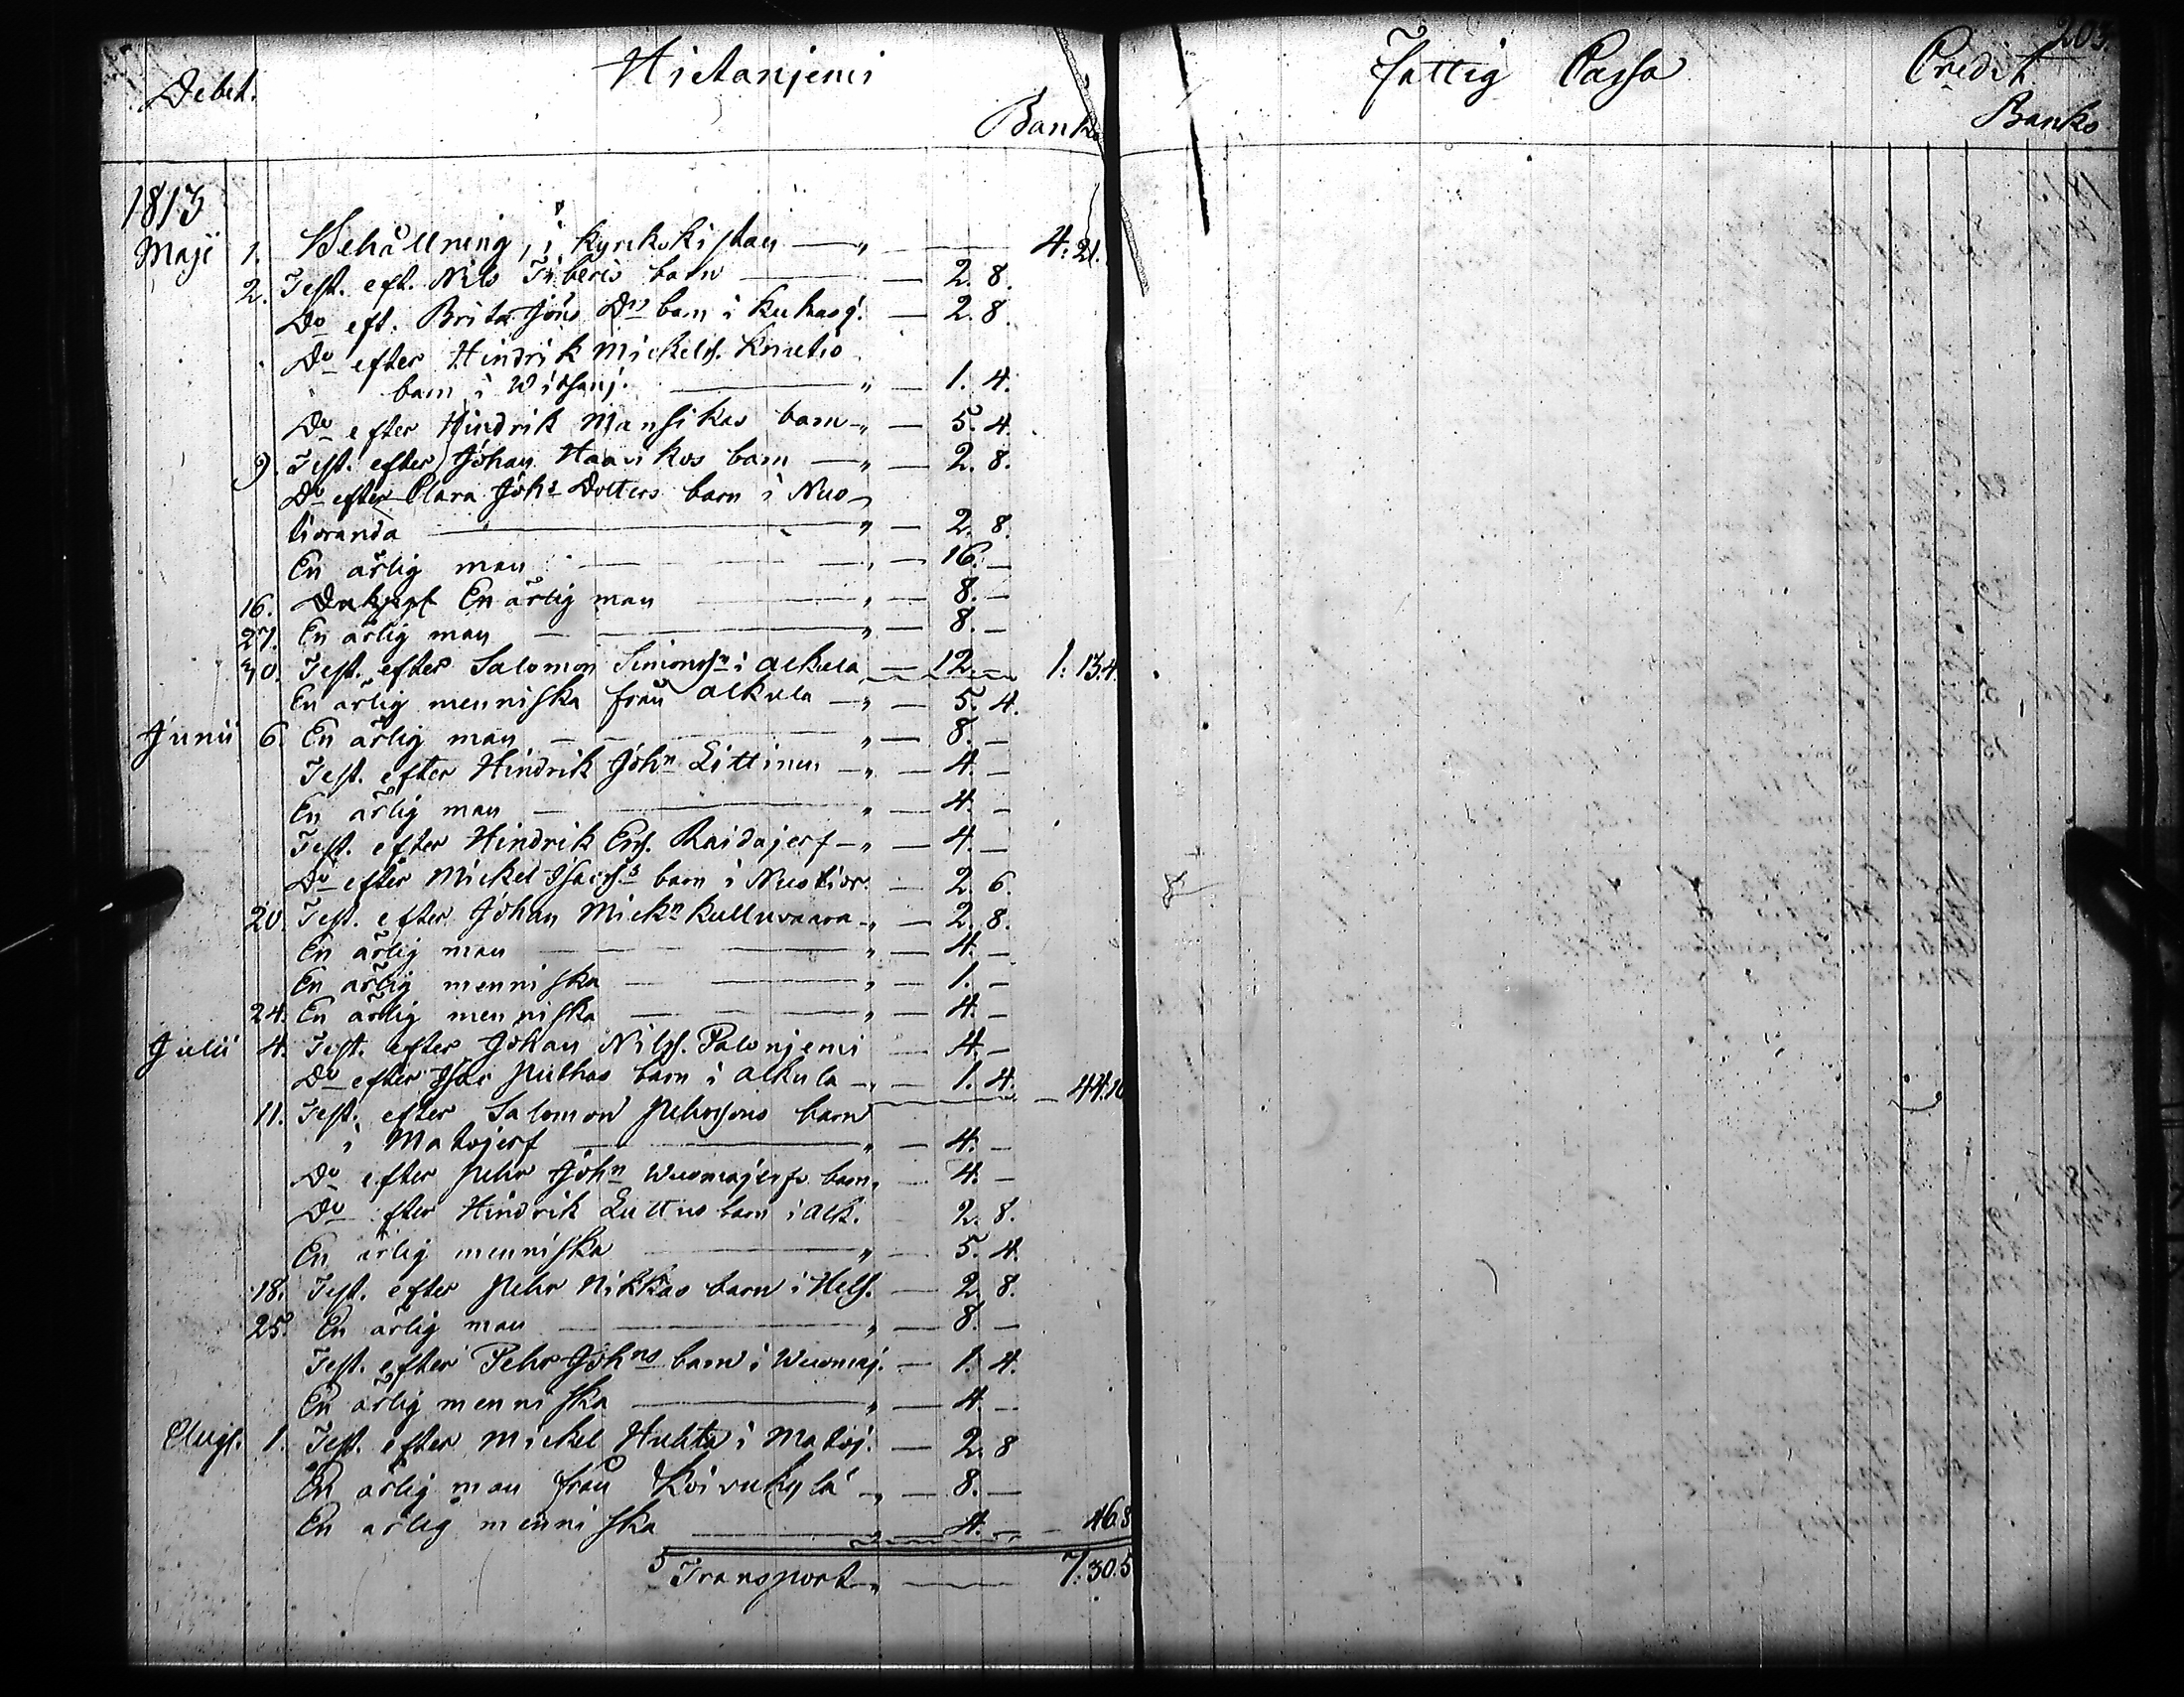 Debet. Hietaniemi
Banko
1813
Maji 1. Behållning, i Kyrkokistan — " — 4: 21.
2. Test. eft. Nils barn — 2. 8.
Do eft. Brita Jons Dr barn i Kukasj. — 2. 8
Do efter Hindrik Mickels.
barn i Witsanj. — " — 1. 4.
Do efter Hindrik Mansikas barn — " — 5. 4.
9. Test. efter Johan Haarikos barn — " — 2. 8.
Do efter Clara Johs Dotters barn i Nuo-
tioranda — " — 2. 8.
En ärlig man — " — 16. —
16. En ärlig man — " — 8. —
27. En ärlig man — " — 8. —
30. Test. efter Salomon Simonsn i Alkula — 12. — 1: 13.4
En ärlig menniska från Alkula — " — 5. 4.
Junii 6. En ärlig man — " — 8. —
Test. efter Hindrik John Littinen — " — 4. —
En ärlig man — " — 4. —
Test. efter Hindrik Ers. Raidajerf — " — 4. —
Do efter Mickel Isacss barn i Nuotior. — 2. 6.
20. Test. efter Johan Mickn Kulluvaara — " — 2. 8.
En ärlig man — " — 4. —
En ärlig menniska — " — 1. —
24. En ärlig menniska — " — 4. —
Julii 4. Test. efter Johan Nilss. Palonjemi — 4. —
Do efter Isac barn i Alkula — " — 1. 4. — 44.10
11. Test. efter Salomon Pehrssons barn
i Matojerf — " — 4. —
Do efter Pehr John Wuomajerfs barn, — 4. —
Do efter Hindrik Luttus barn i Alk. 2. 8.
En ärlig menniska — " — 5. 4.
18. Test. efter Pehr Nikkas barn i Hels. — 2. 8.
25. En ärlig man — " — 8. —
Test. efter Pehr Johns barn i Wuomaj. — 1. 4.
En ärlig menniska — " — 4. —
Augs. 1. Test. efter Mickel Huhta i Matoj. — 2. 8
En ärlig man från Koivukylä — " — 8. —
En ärlig menniska — " — 4. — 46.8
Transport " — 7: 30.5
203.
Fattig Cassa Credit
Banko